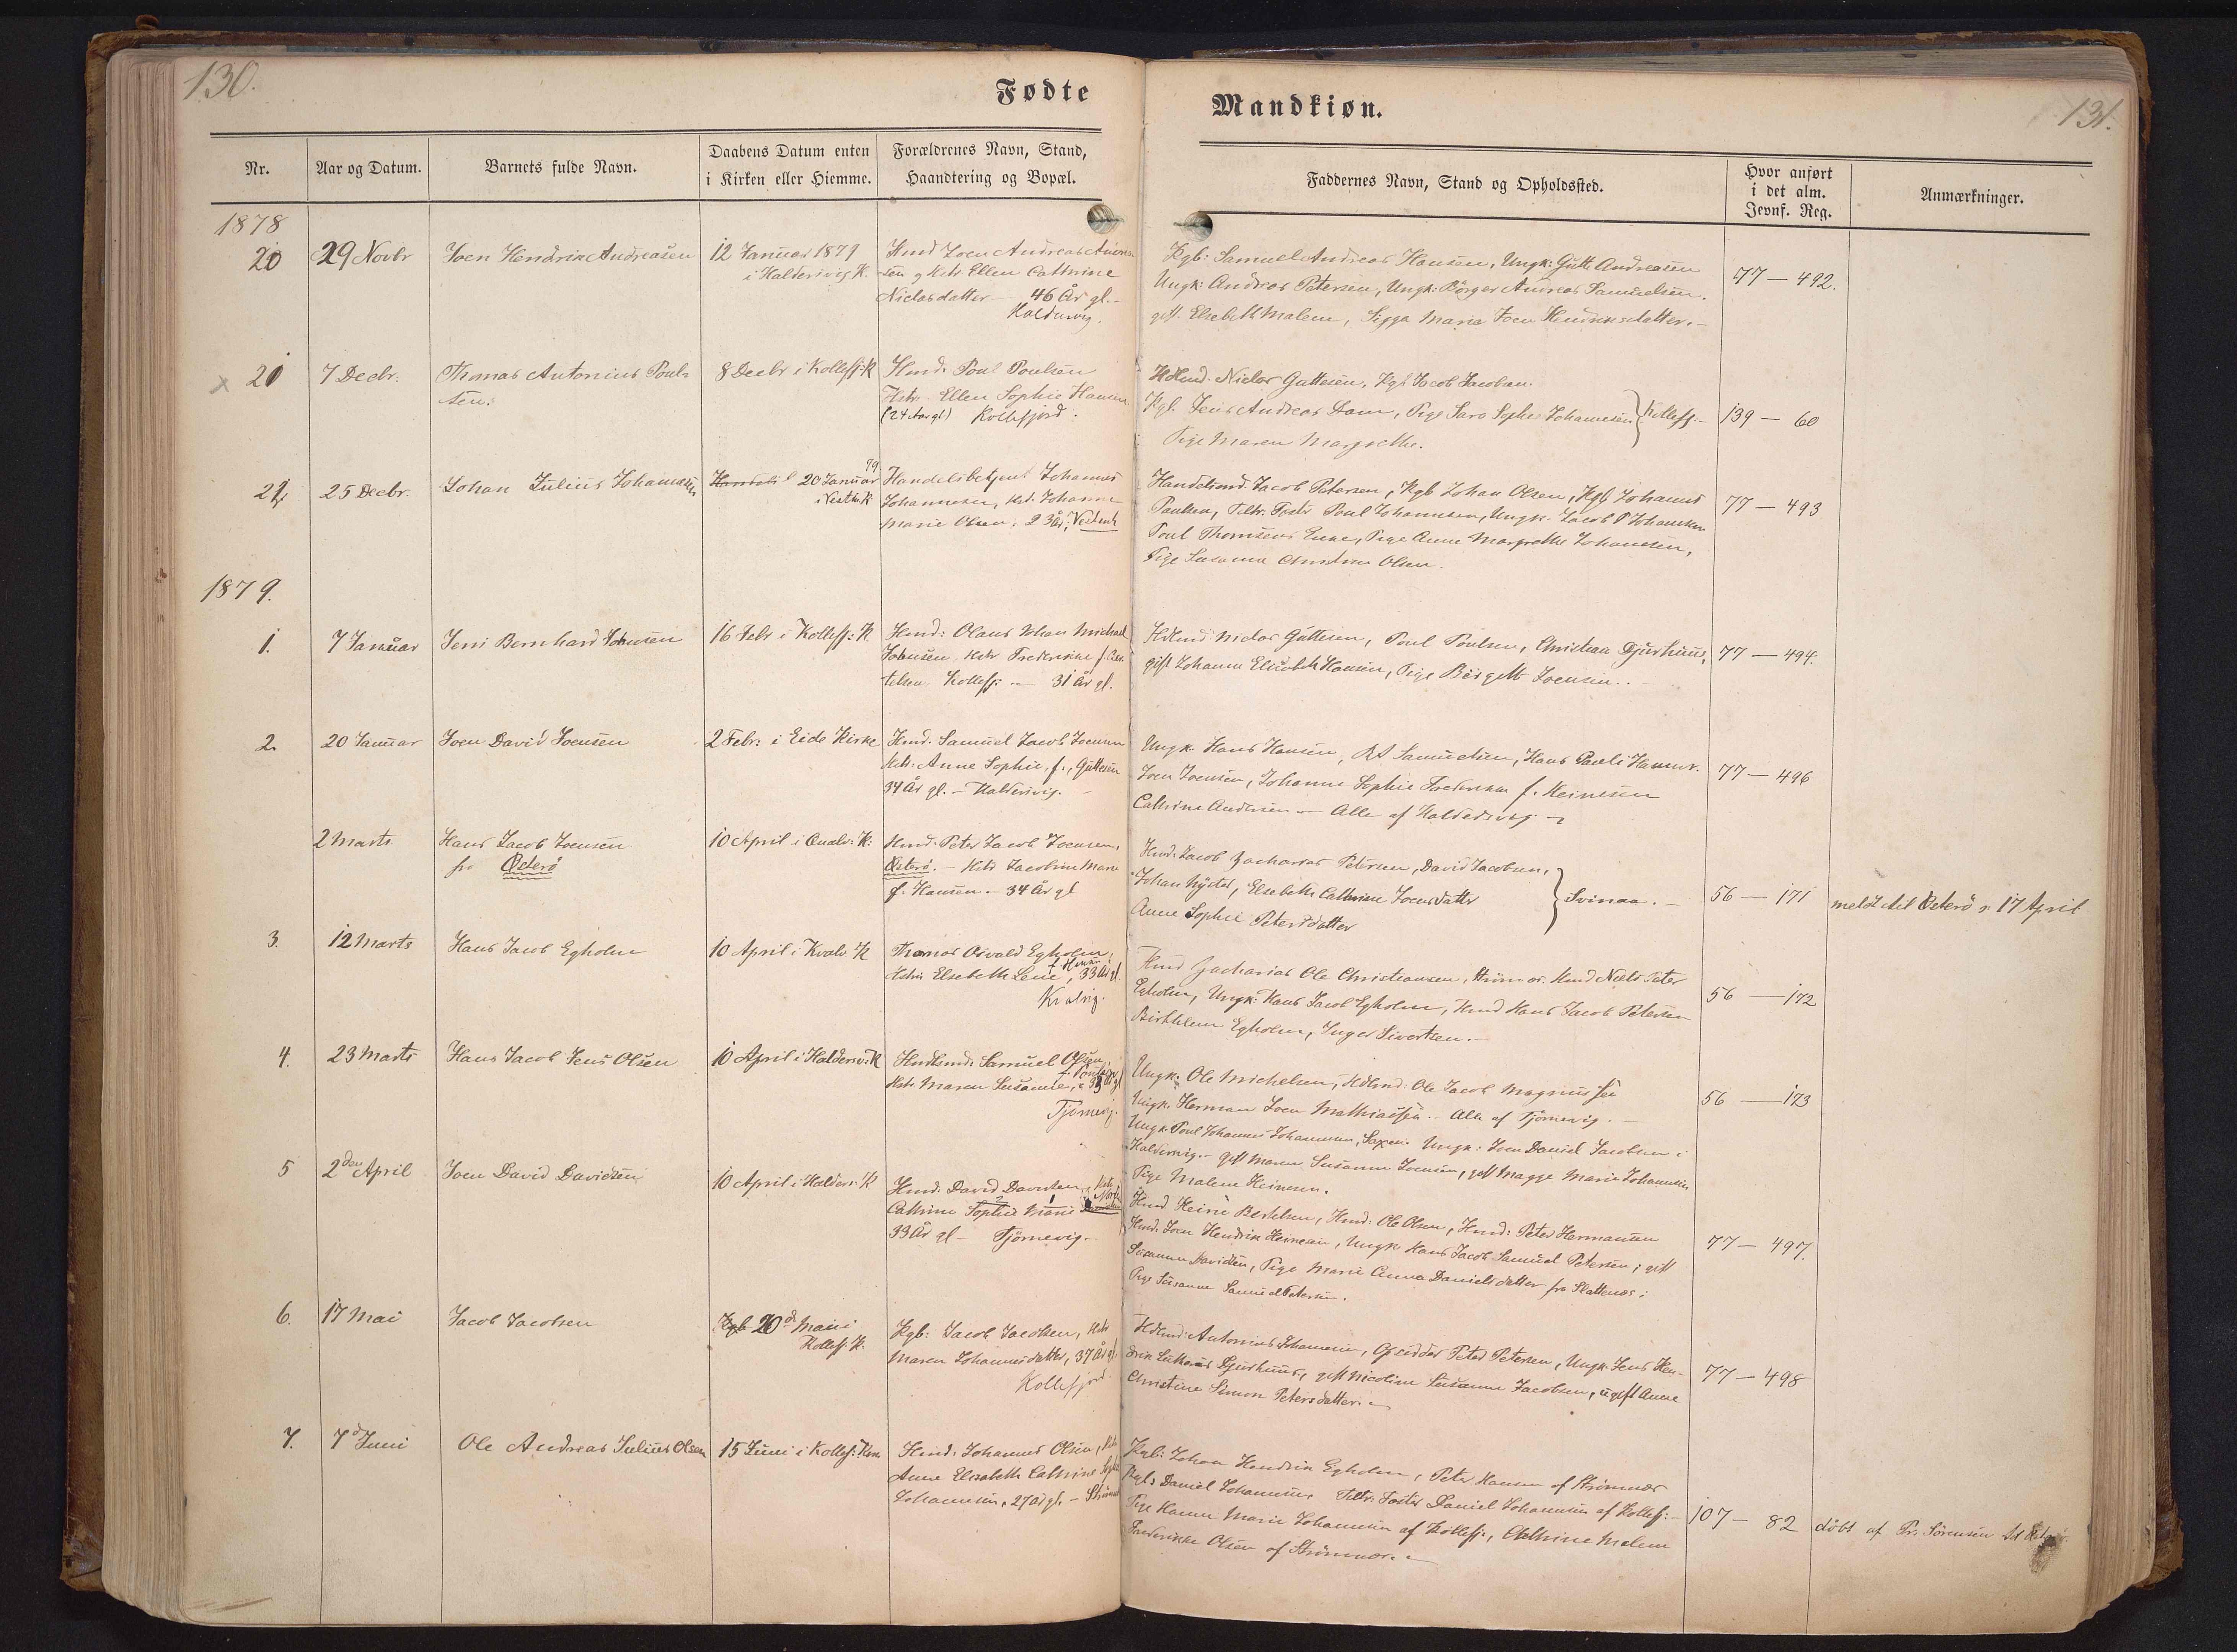 130.
Fødte
Nr.
Aar og Datum.
Barnets fulde Navn.
Daabens Datum enten
i Kirken eller Hiemme.
Forældrenes Navn, Stand,
Haandtering og Bopæl.
1878
20 29 Novbr Joen Hendrik Andreasen 12 Januar 1879
i Haldersvig K
Hmd Joen Andreas
sen og Kstr Ellen Cathrine
Niclasdatter — 46 År gl. -
Haldersvig.
21 7 Decbr. Thomas Antonius Poul-
sen.
8 Decbr i Kollefj: K
Hmd. Poul Poulsen
Hstr. Ellen Sophie Hansen
(24 Aar gl) Kollefjord.
22 25 Decbr. Johan Julius Johannesen
20 Januar 79
i Vestm K
Handelsbetjent Johannes
Johannesen, Kst. Johanne
Marie Olsen, 23 År, Vestmh
1879.
1. 7 Januar Jens Bernhard Johnsen 16 Febr i Kollefj: K
Hmd: Olaus Johan Michael
Johnsen Kstr Frederikke f.
Kollefj: — 31 År gl.
2. 20 Januar Joen David Joensen 2 Febr: i Eide Kirke
Hmd. Samuel Jacob Joensen
Kstr. Anne Sophie, f. Guttesen
34 År gl. — Haldersvig. -
2 Marts Hans Jacob Joensen
fra Østerø
10 April i Qualv: K:
Hmd. Peter Jacob Joensen,
Østerø. — Kstr Jacobine Marie
f. Hansen — 34 År gl
3. 12 Marts Hans Jacob Egholm 10 April i Kvalv K
Thomas Osvald Egholm,
Kstr Elsebeth Lene, 33 År gl
Kvalvig.
4. 23 Marts Hans Jacob Jens Olsen 10 April i Haldersv: K
Samuel Olsen,
Kstr. Maren Susanne, f. Poulsen
Tjørnevig.
5 2den April Joen David Davidsen 10 April i Halders: K
Hmd. David Davidsen, Kstr
Cathrine Sophie Marie
33 År gl — Tjørnevig. -
6. 17 Mai Jacob Jacobsen 20d Mai i
Kollefj K.
Kgb: Jacob Jacobsen, Kstr
Maren Johannesdatter, 37 År gl.
Kollefjord
7. 7d Juni Ole Andreas Julius Olsen 15 Juni i Kollefj: Kirke
Hmd. Johannes Olsen, Kstr
Anne Elisabeth Cathrine Sophie
Johannesen, 27 År gl. — Strømnæs
Mandkiøn.
131.
Faddernes Navn, Stand og Opholdssted.
Hvor anført
i det alm.
Jevnf. Reg.
Anmærkninger.
Kgb: Samuel Andreas Hansen, Ungk: Gutte Andreasen
Ungk: Andreas Petersen, Ungk: Børger Andreas Samuelsen.
gift Elsebeth Malene, Sigga Marie Joen Hendriksdatter. —
77 — 492.
Niclas Guttesen, Kgb Jacob Jacobsen.
Kgb. Jens Andreas Dam, Pige Sara Sophie Johannesen
Pige Maren Margrethe.
Kollefj. —
139 — 60
Handelsmd. Jacob Petersen, Kgb Johan Olsen, Kgb Johannes
Poulsen, Poul Johannesen, Ungk. Jacob P Johannesen
Poul Thomsens Enke, Pige Anne Margrethe Johannesen,
Pige Susanna Christine Olsen.
77 — 493
Niclas Guttesen, Poul Poulsen, Christian Djurhuus,
gift Johanne Elisabeth Hansen, Pige Birgitte Joensen. .
77 — 494.
Ungk. Hans Hansen, Samuelsen, Hans Pauli Hansen.
Joen Joensen, Johanne Sophie Frederikke f. Heinesen
Cathrine Andersen — Alle af Haldersvig —
77 — 496
Hmd: Jacob Zacharias Petersen, David Jacobsen,
Johan, Elsebeth Cathrine Joensdatter
Anne Sophie Petersdatter
Svinaa. —
56 — 171
meldt til Østerø d. 17 April
Hmd Zacharias Ole Christiansen, Strømnæs. Hmd Niels Peter
Egholm, Ungk: Hans Jacob Egholm, Hmd Hans Jacob Petersen
Birthlene Egholm, Inger Sivertsen. —
56 — 172
Ungk. Ole Michelsen, Ole Jacob Magnussen
Ungk. Herman Joen Mathiassen. Alle af Tjørnevig. —
Ungk. Poul Johannes Johannesen, Saxen. Ungk: Joen Daniel Jacobsen i
Haldersvig. — gift Maren Susanne Joensen, gift Magge Marie Johannesen
Pige Malene Heinesen.
56 — 173
Hmd Heine Berthelsen, Hmd: Ole Olsen, Hmd: Peter Hermansen
Hmd: Joen Hendrik Heinesen, Ungk Hans Jacob Samuel Petersen; gift
Susanne Davidsen, Pige Marie Anna Danielsdatter fra Slattenæs;
Pige Susanne Samuel Petersen.
77 — 497.
Antonius Johannesen, Opsidder Peter Petersen, Ungk Jens Hen-
drik Lutherus Djurhuus, gift Nicoline Susanne Jacobsen, ugift Anne
Christine Simon Petersdatter. —
77 — 498
Kgb: Johan Hendrik Egholm, Peter Hansen af Strømnæs
Kgb: Daniel Johannesen, Daniel Johannesen af Kollefj: —
Pige Hanne Marie Johannesen af Kollefj:, Cathrine Malene
Frederikke Olsen af Strømnæs. —
107 — 82
døbt af Pr. Sørensen